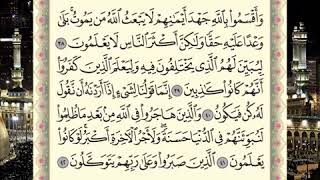 وَأَقْسَمُوا۟ بِٱللَّهِ جَهْدَ أَيْمَـٰنِهِمْ لَا يَبْعَثُ ٱللَّهُ مَن يَمُوتُ ۚ بَلَىٰ
وَعْدًا عَلَيْهِ حَقًّا وَلَـٰكِنَّ أَكْثَرَ ٱلنَّاسِ لَا يَعْلَمُونَ ٣٨
لِيُبَيِّنَ لَهُمُ ٱلَّذِى يَخْتَلِفُونَ فِيهِ وَلِيَعْلَمَ ٱلَّذِينَ كَفَرُوٓا۟
أَنَّهُمْ كَانُوا۟ كَـٰذِبِينَ ٣٩ إِنَّمَا قَوْلُنَا لِشَىْءٍ إِذَآ أَرَدْنَـٰهُ أَن نَّقُولَ
لَهُۥ كُن فَيَكُونُ ٤٠ وَٱلَّذِينَ هَاجَرُوا۟ فِى ٱللَّهِ مِنۢ بَعْدِ مَا ظُلِمُوا۟
لَنُبَوِّئَنَّهُمْ فِى ٱلدُّنْيَا حَسَنَةً ۖ وَلَأَجْرُ ٱلْـَٔاخِرَةِ أَكْبَرُ ۚ لَوْ كَانُوا۟
يَعْلَمُونَ ٤١ ٱلَّذِينَ صَبَرُوا۟ وَعَلَىٰ رَبِّهِمْ يَتَوَكَّلُونَ ٤٢